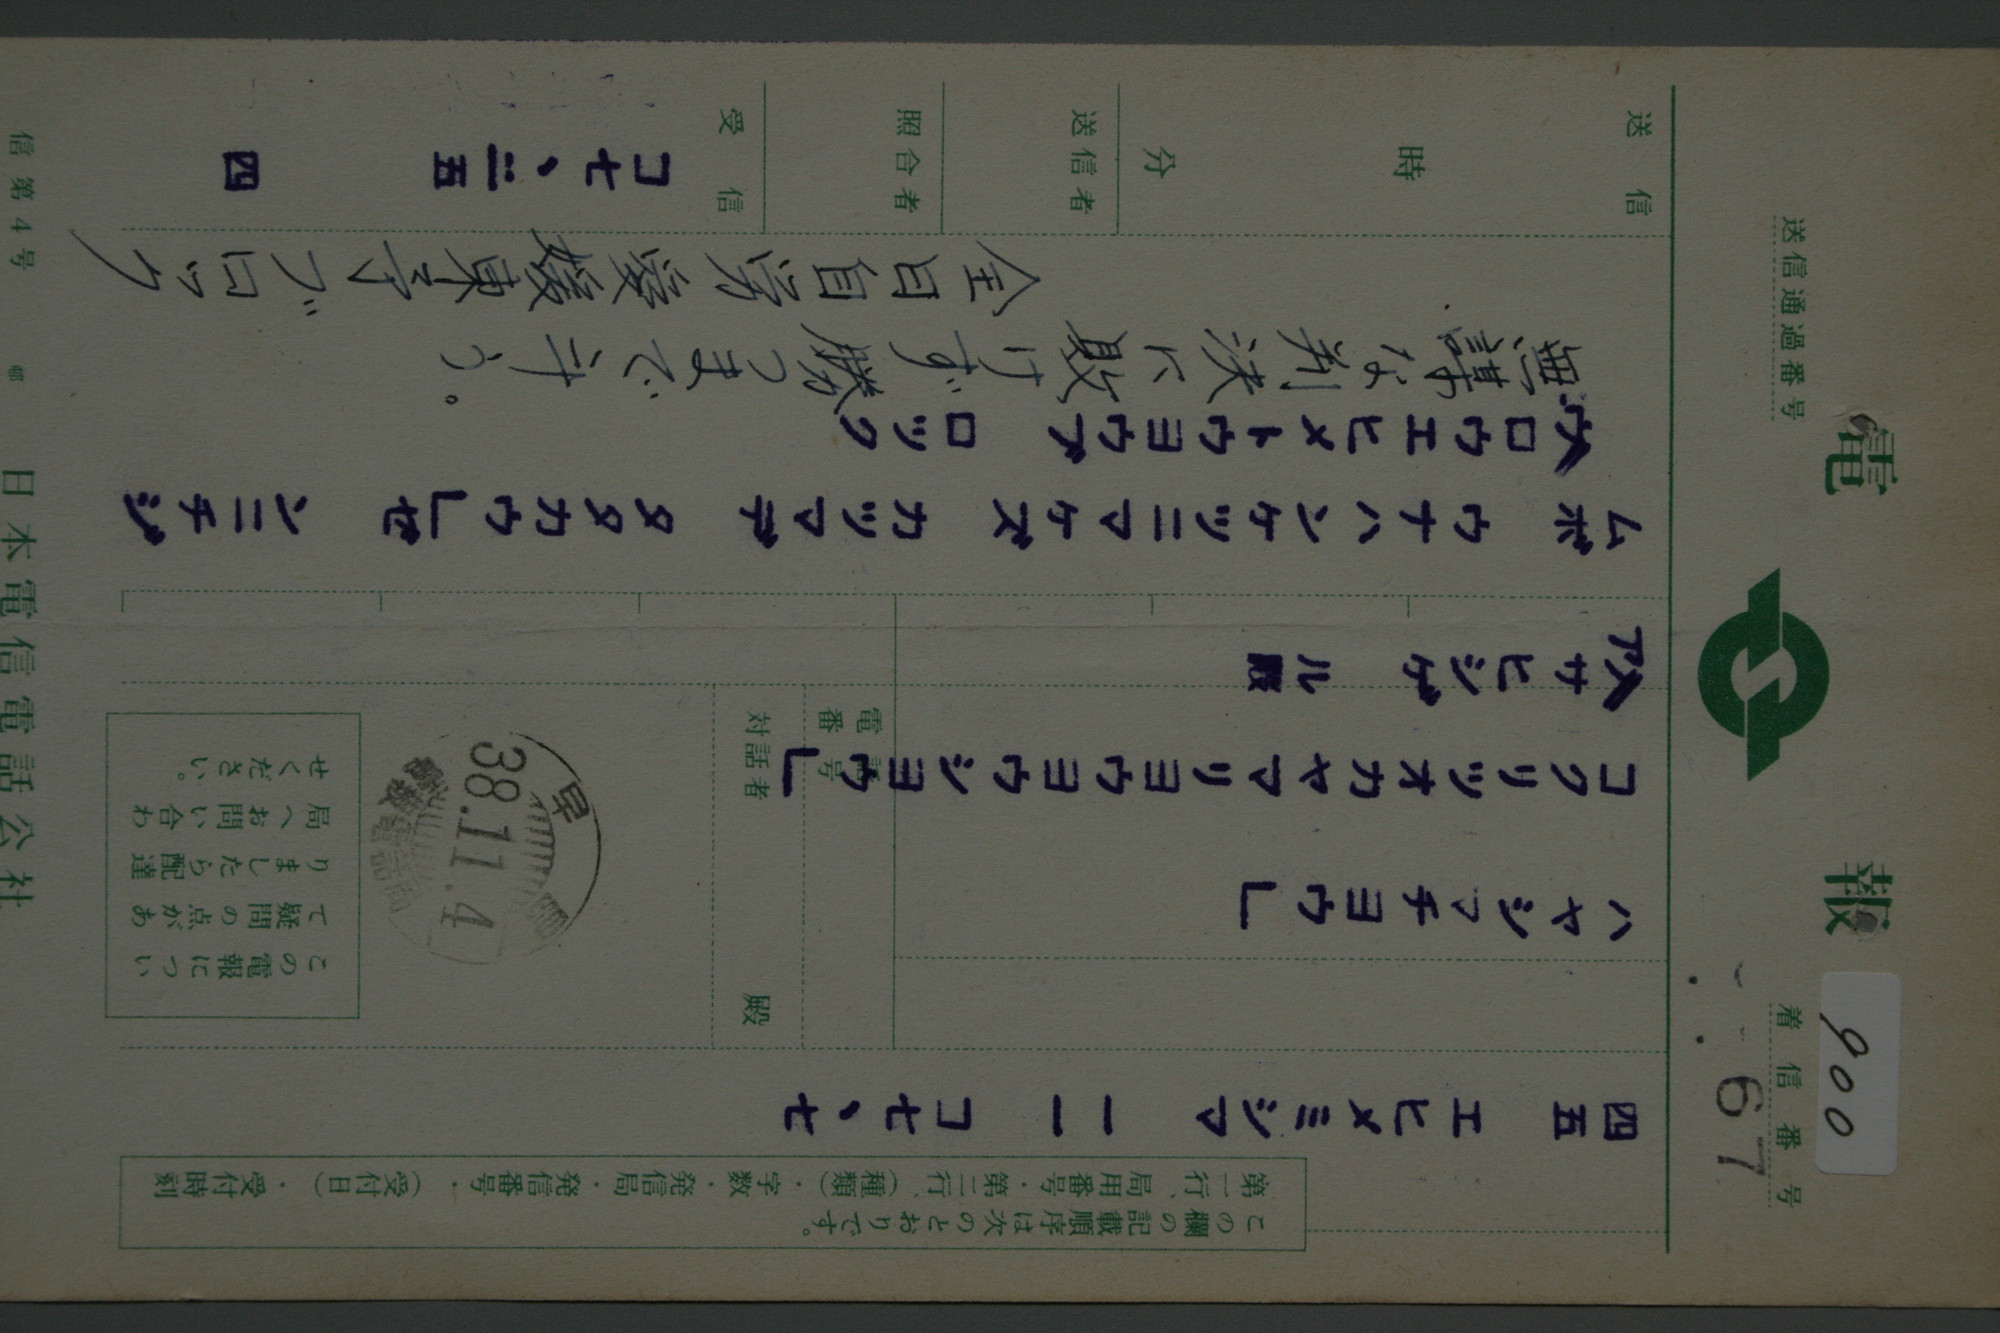 電報
送信通過番号
着信番号
900
67
この欄の記載順序は次のとおりです。
第一行、局用番号・第二行、(種類)・字数・発信局・発信番号・(受付日)・受付時刻
四五 エヒメミシマ 一一 コ七、七
ハヤシマチヨウ」
コクリツオカヤマリヨウヨウシヨウ」
アサヒシゲル殿
電話番号
対話者 殿
早
38.11.4
この電報につい
て疑問の点があ
りましたら配達
局へお問い合わ
せください。
ムボウナハンケツニマケズ カツマデ タタカウ」ゼンニチジ
ロウエヒメトウヨウブロック
無謀な判決に敗けず勝つまで斗う。
全日自労愛媛東予ブロック
送信
時
分
送信者
照合者
受信
コ七、三五 四
信第4号
日本電信電話公社